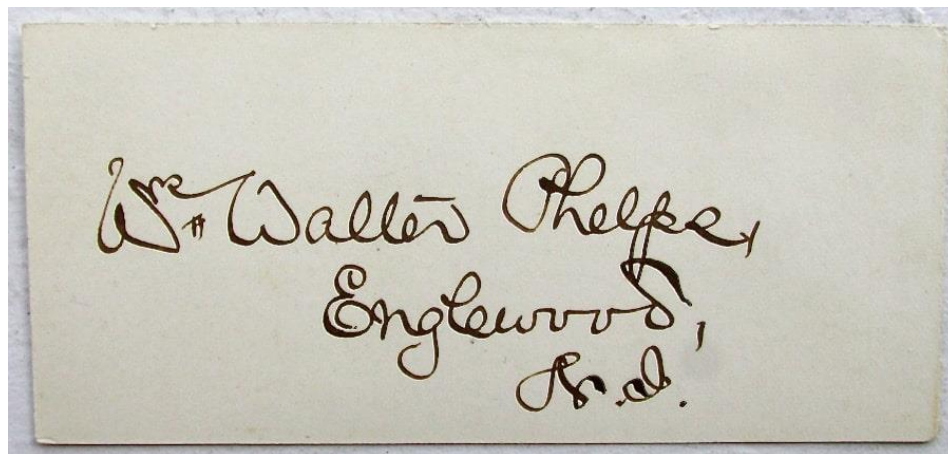 Wm Walter Phelps,
Englewood,
N.J.